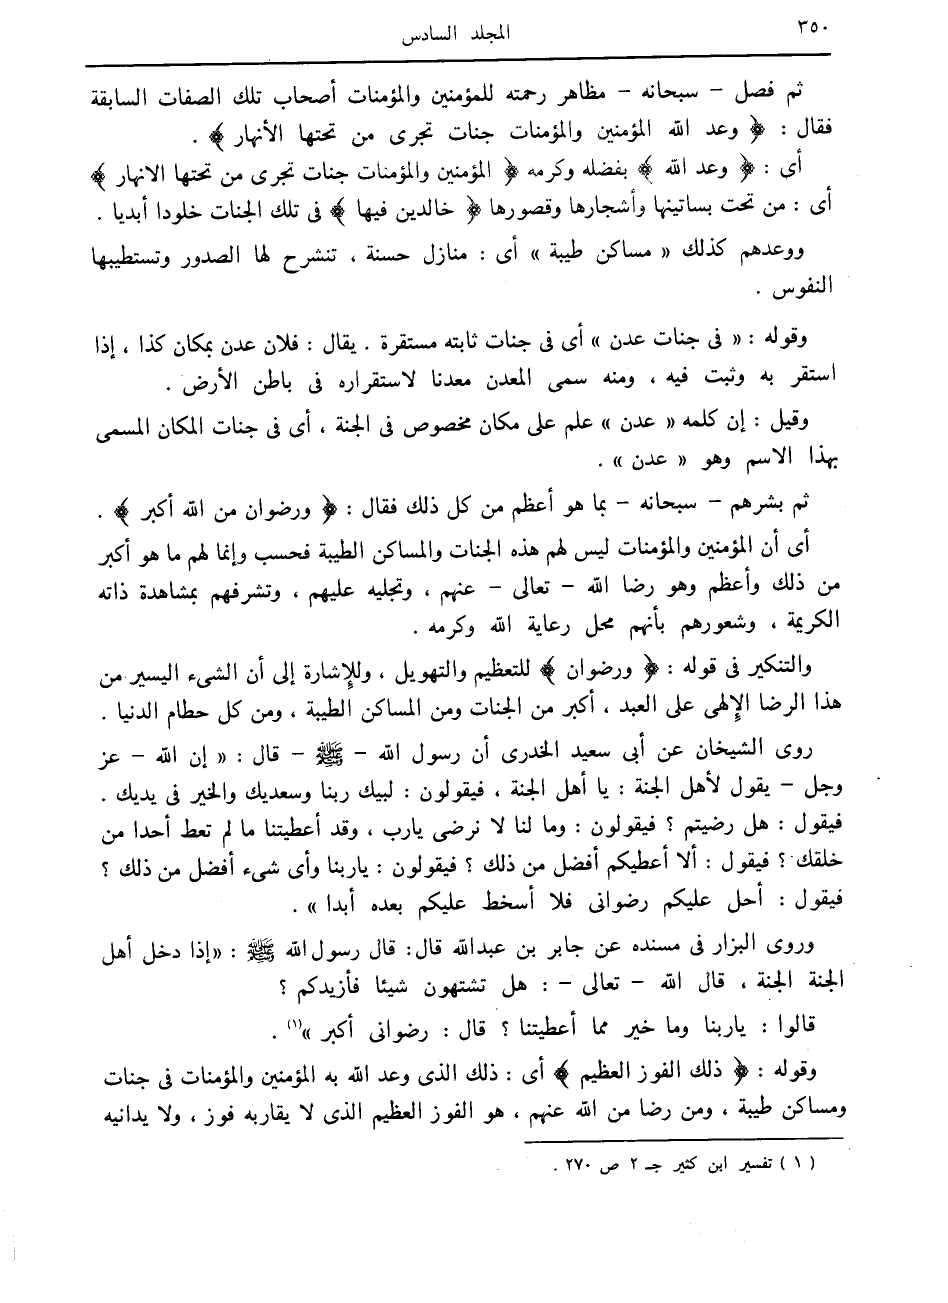 ٣٥٠
المجلد السادس
ثم فصل - سبحانه - مظاهر رحمته للمؤمنين والمؤمنات أصحاب تلك الصفات السابقة
فقال : ﴿ وعد الله المؤمنين والمؤمنات جنات تجرى من تحتها الأنهار ﴾ .
أى : ﴿ وعد الله ﴾ بفضله وكرمه ﴿ المؤمنين والمؤمنات جنات تجرى من تحتها الانهار ﴾
أى : من تحت بساتينها وأشجارها وقصورها ﴿ خالدين فيها ﴾ فى تلك الجنات خلودا أبديا .
ووعدهم كذلك « مساكن طيبة » أى : منازل حسنة ، تنشرح لها الصدور وتستطيبها
النفوس .
وقوله : « فى جنات عدن » أى فى جنات ثابته مستقرة . يقال : فلان عدن بمكان كذا ، إذا
استقر به وثبت فيه ، ومنه سمى المعدن معدنا لاستقراره فى باطن الأرض .
وقيل : إن كلمه « عدن » علم على مكان مخصوص فى الجنة ، أى فى جنات المكان المسمى
بهذا الاسم وهو « عدن » .
ثم بشرهم - سبحانه - بما هو أعظم من كل ذلك فقال : ﴿ ورضوان من الله أكبر ﴾ .
أى أن المؤمنين والمؤمنات ليس لهم هذه الجنات والمساكن الطيبة فحسب وإنما لهم ما هو أكبر
من ذلك وأعظم وهو رضا الله - تعالى - عنهم ، وتجليه عليهم ، وتشرفهم بمشاهدة ذاته
الكريمة ، وشعورهم بأنهم محل رعاية الله وكرمه .
والتنكير فى قوله : ﴿ ورضوان ﴾ للتعظيم والتهويل ، وللإشارة إلى أن الشىء اليسير من
هذا الرضا الإلهى على العبد ، أكبر من الجنات ومن المساكن الطيبة ، ومن كل حطام الدنيا .
روى الشيخان عن أبى سعيد الخدرى أن رسول الله - ﷺ - قال : « إن الله - عز
وجل - يقول لأهل الجنة : يا أهل الجنة ، فيقولون : لبيك ربنا وسعديك والخير فى يديك .
فيقول : هل رضيتم ؟ فيقولون : وما لنا لا نرضى يارب ، وقد أعطيتنا ما لم تعط أحدا من
خلقك ؟ فيقول : ألا أعطيكم أفضل من ذلك ؟ فيقولون : ياربنا وأى شىء أفضل من ذلك ؟
فيقول : أحل عليكم رضوانى فلا أسخط عليكم بعده أبدا » .
وروى البزار فى مسنده عن جابر بن عبدالله قال: قال رسول الله ﷺ : «إذا دخل أهل
الجنة الجنة ، قال الله - تعالى - : هل تشتهون شيئا فأزيدكم ؟
قالوا : ياربنا وما خير مما أعطيتنا ؟ قال : رضوانى أكبر »(١) .
وقوله : ﴿ ذلك الفوز العظيم ﴾ أى : ذلك الذى وعد الله به المؤمنين والمؤمنات فى جنات
ومساكن طيبة ، ومن رضا من الله عنهم ، هو الفوز العظيم الذى لا يقاربه فوز ، ولا يدانيه
( ١ ) تفسير ابن كثير جـ ٢ ص ٢٧٠ .